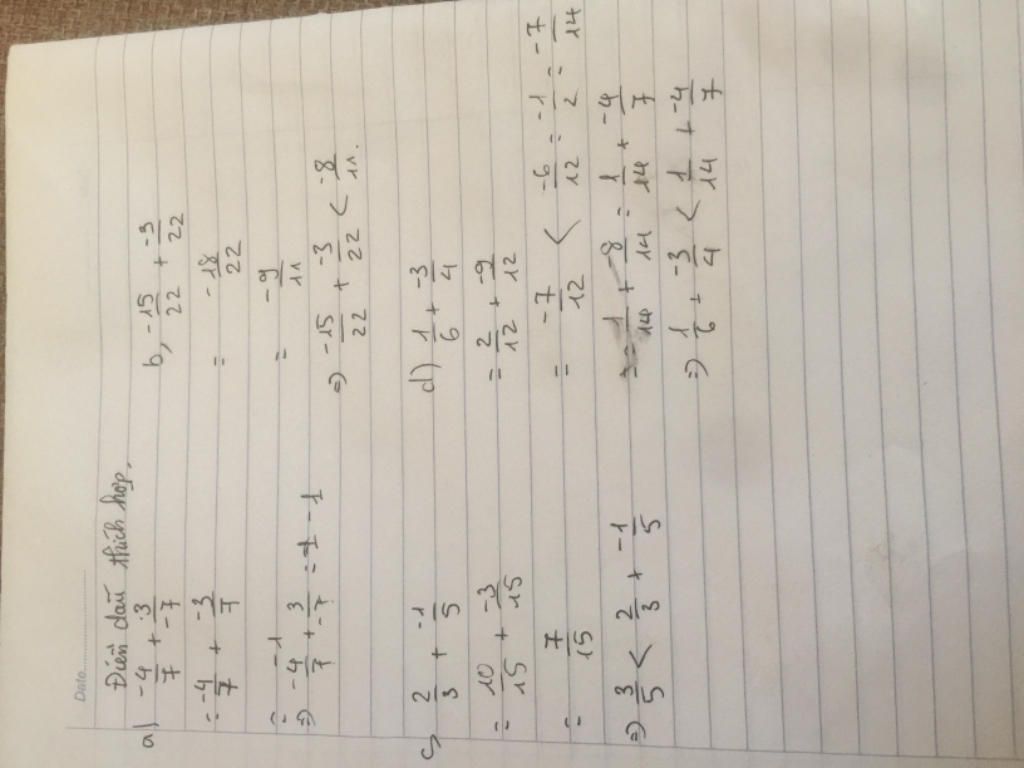 Date
Điền dấu thích hợp,
a) -4/7 + 3/-7
= -4/7 + -3/7
= -1
=> -4/7 + 3/-7 = -1
b, -15/22 + -3/22
= -18/22
= -9/11
=> -15/22 + -3/22 < -8/11.
c, 2/3 + -1/5
= 10/15 + -3/15
= 7/15
=> 3/5 < 2/3 + -1/5
d) 1/6 + -3/4
= 2/12 + -9/12
= -7/12 < -6/12 = -1/2 = -7/14
= 1/14 + -8/14 = 1/14 + -4/7
=> 1/6 + -3/4 < 1/14 + -4/7